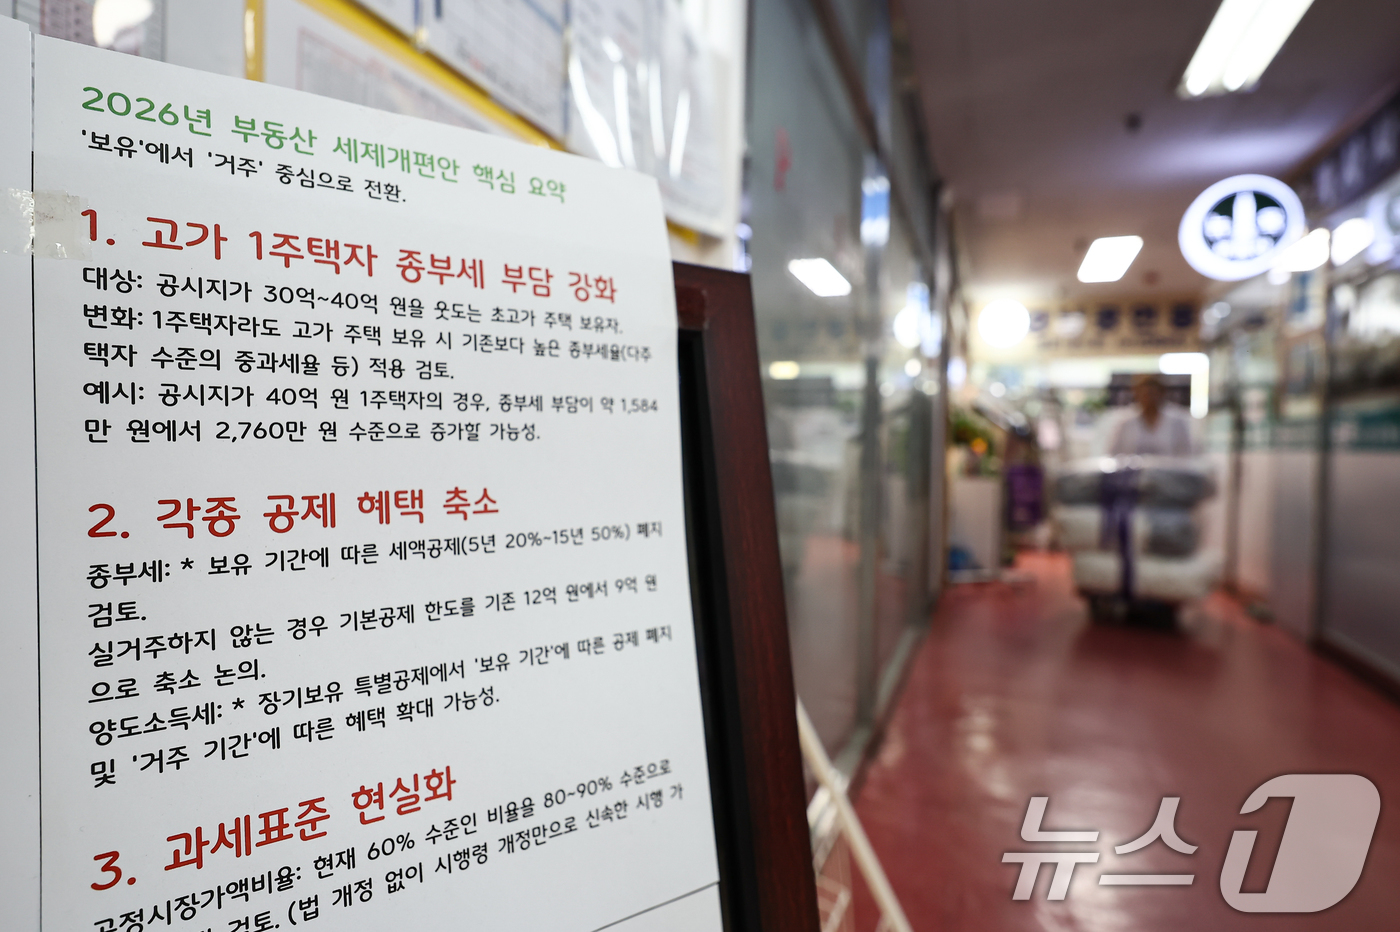 2026년 부동산 세제개편안 핵심 요약
'보유'에서 '거주' 중심으로 전환.
1. 고가 1주택자 종부세 부담 강화
대상: 공시지가 30억~40억 원을 웃도는 초고가 주택 보유자.
변화: 1주택자라도 고가 주택 보유 시 기존보다 높은 종부세율(다주
택자 수준의 중과세율 등) 적용 검토.
예시: 공시지가 40억 원 1주택자의 경우, 종부세 부담이 약 1,584
만 원에서 2,760만 원 수준으로 증가할 가능성.
2. 각종 공제 혜택 축소
종부세: * 보유 기간에 따른 세액공제(5년 20%~15년 50%) 폐지
검토.
실거주하지 않는 경우 기본공제 한도를 기존 12억 원에서 9억 원
으로 축소 논의.
양도소득세: * 장기보유 특별공제에서 '보유 기간'에 따른 공제 폐지
및 '거주 기간'에 따른 혜택 확대 가능성.
3. 과세표준 현실화
공정시장가액비율: 현재 60% 수준인 비율을 80~90% 수준으로
검토. (법 개정 없이 시행령 개정만으로 신속한 시행 가
뉴스1